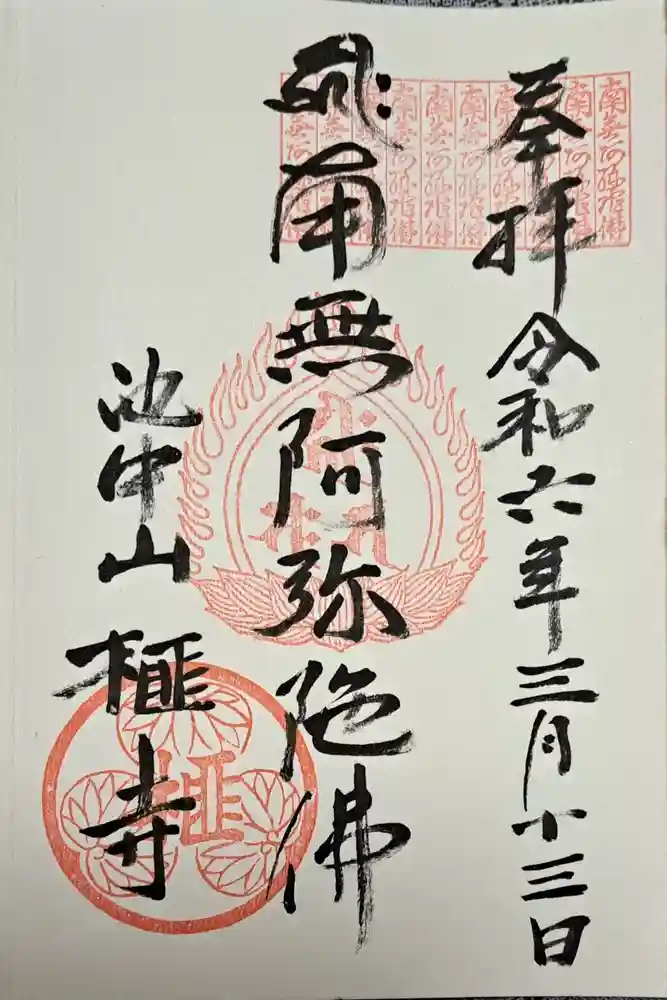 奉拝 令和六年三月十三日
南無阿弥陀佛
池中山 榧寺
南無阿弥陀佛
南無阿弥陀佛
南無阿弥陀佛
南無阿弥陀佛
南無阿弥陀佛
南無阿弥陀佛
南無阿弥陀佛
南無阿弥陀佛
南無阿弥陀佛
南無阿弥陀佛
榧